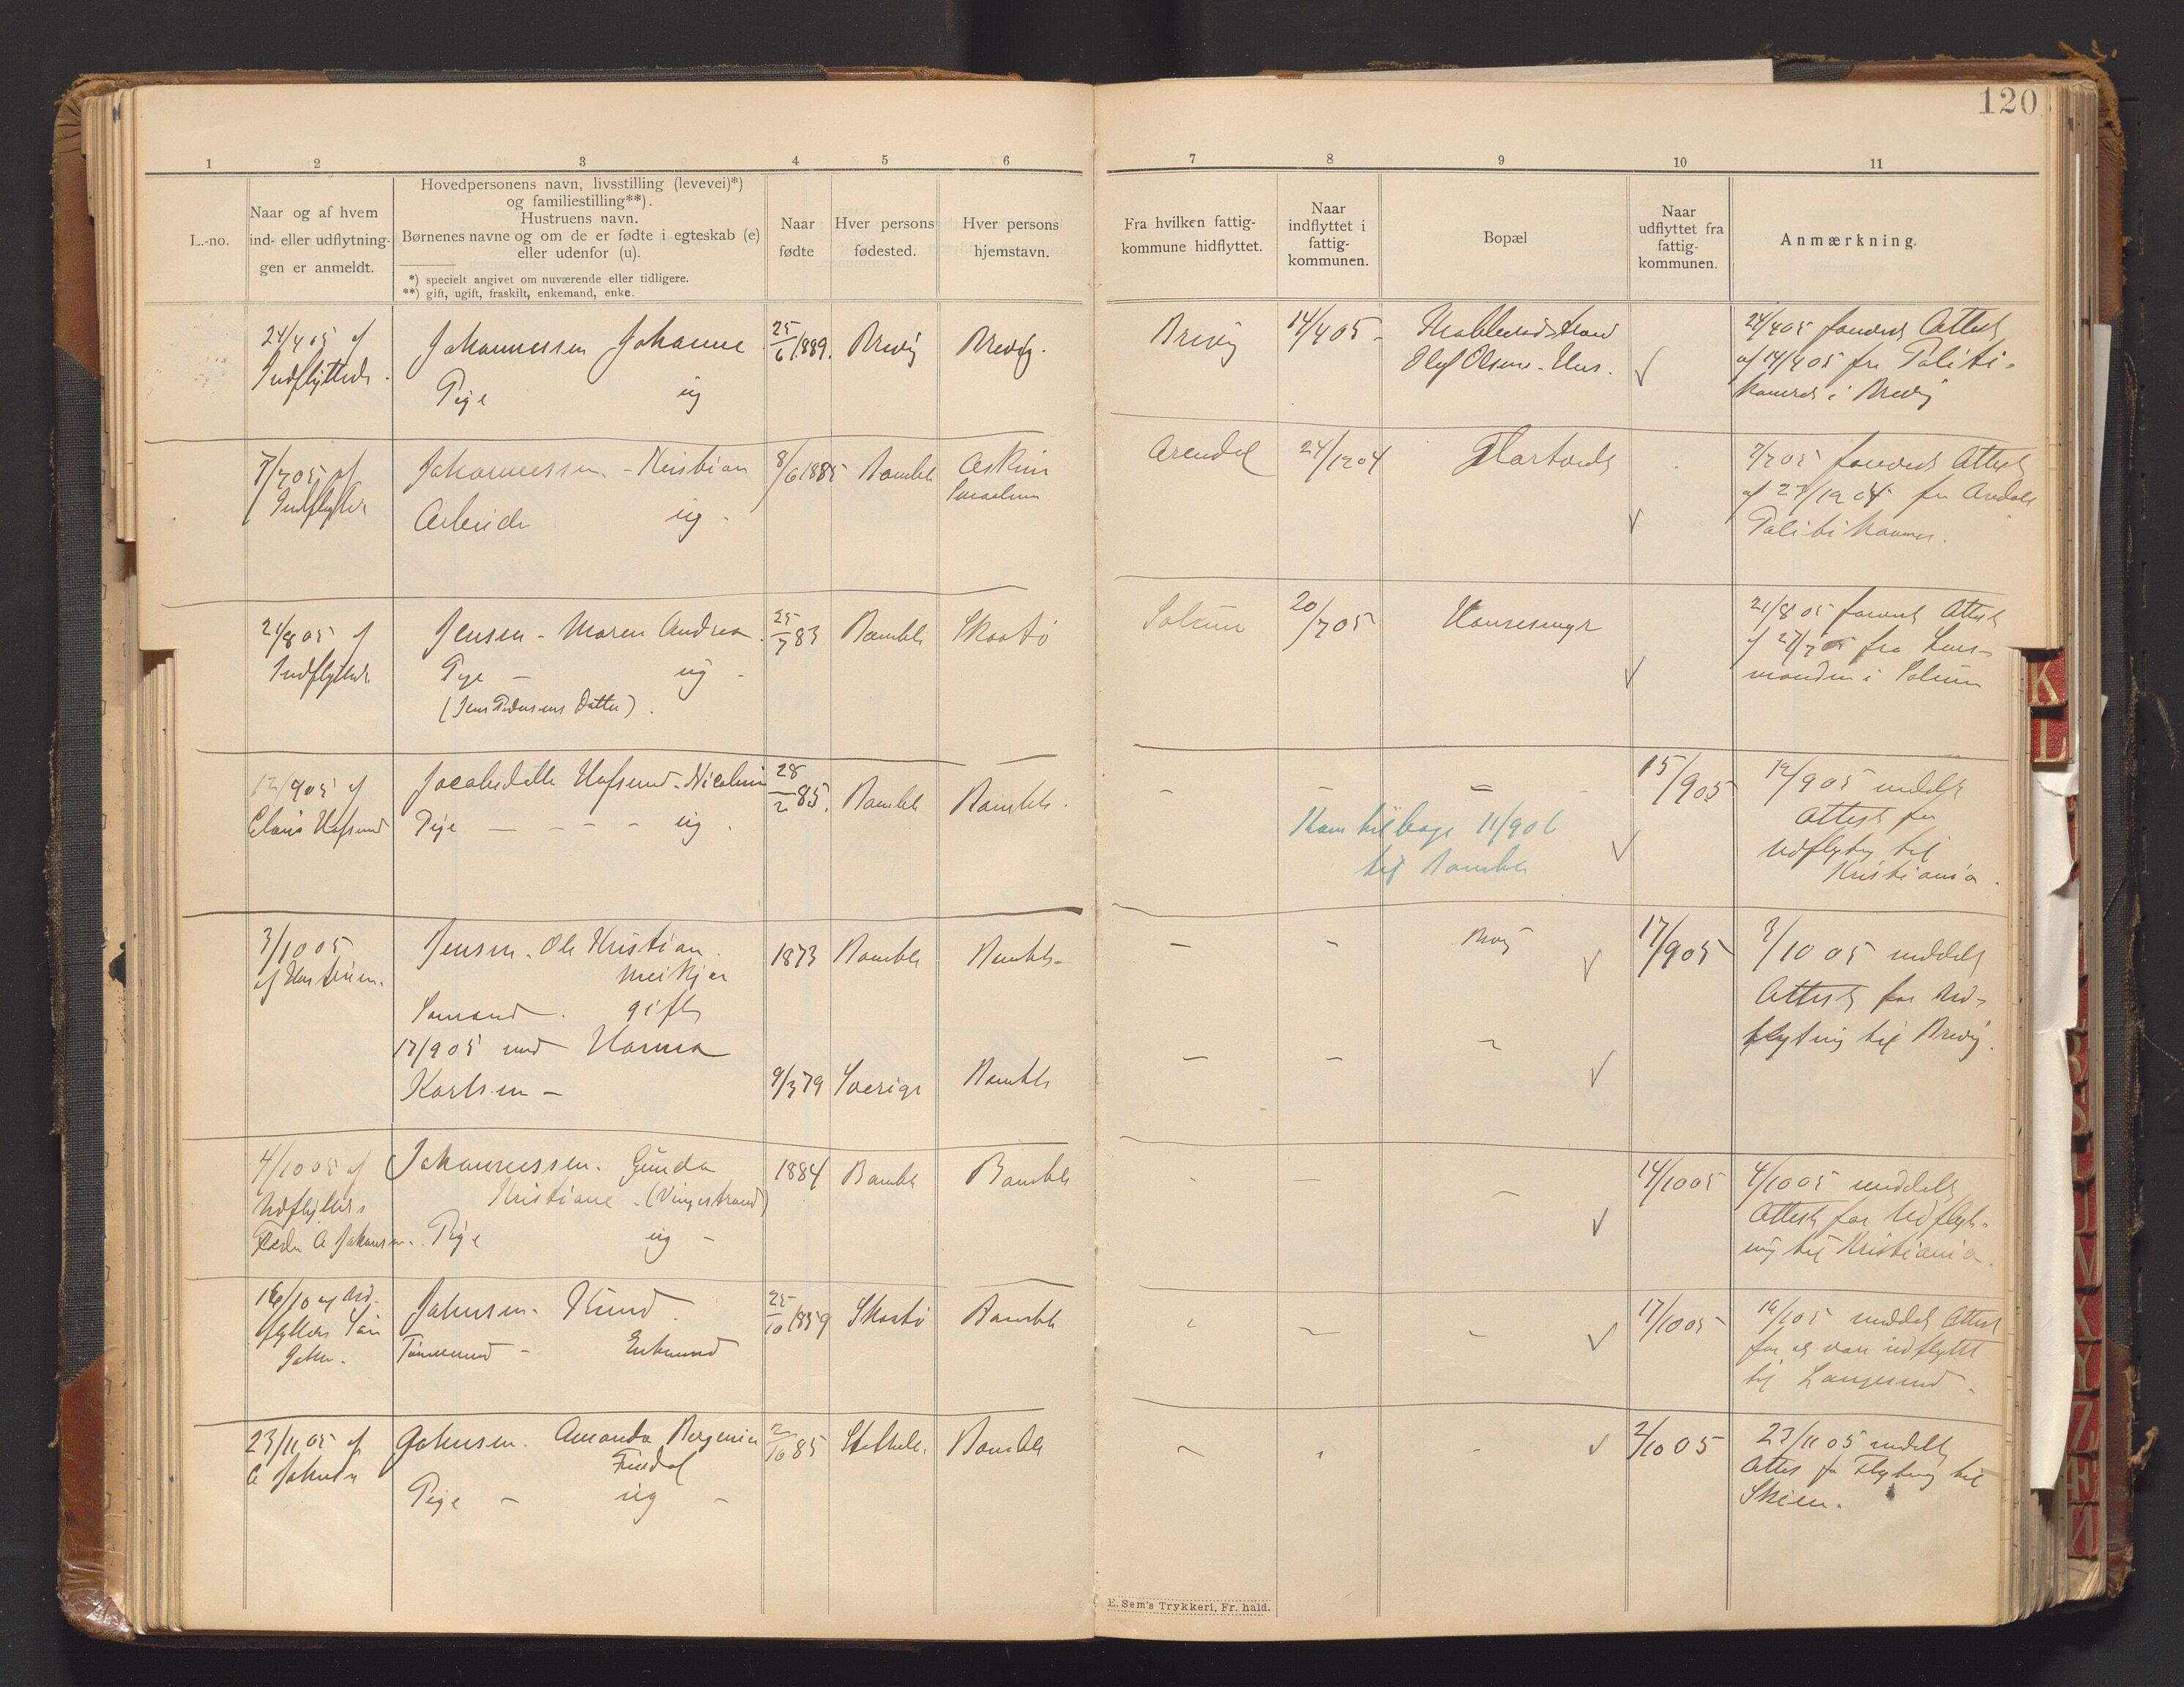 120
1 2 3 4 5 6 7 8 9 10 11
L.-no.
Naar og af hvem
ind- eller udflytnin-
gen er anmeldt.
Hovedpersonens navn, livsstilling (levevei)*)
og familiestilling**).
Hustruens navn.
Børnenes navne og om de er fødte i egteskab (e)
eller udenfor (u).
*) specielt angivet om nuværende eller tidligere.
**) gift, ugift, fraskilt, enkemand, enke.
Naar
fødte
Hver persons
fødested.
Hver persons
hjemstavn.
Fra hvilken fattig-
kommune hidflyttet.
Naar
indflyttet i
fattig-
kommunen.
Bopæl
Naar
udflyttet fra
fattig-
kommunen.
Anmærkning.
24/4 05 af
Indflytteds.
Johannessen Johanne
Pige ug
25/6 1889. Brevig Brevig.
Brevig 14/4 05.
Olaf Olsens Hus.
24/4 05 forevist Attest
af 14/4 05 fra Politi-
kamret i Brevig
7/7 05 af
Indflytter
Johannessen - Kristian
Arbeider ug -
8/6 1885 Bamble Askim
Arendal 24/12 04
7/7 05 forevist Attest
af 27/12 04 fra Arendals
Politikammer.
21/8 05 af
Indflytteds
Jensen - Maren Andrea.
Pige - ug -
(Jens Pedersens Datter).
25/7 83 Bamble Skaatø
Solum 20/7 05
21/8 05 forevist Attest
af 27/7 05 fra Lens-
manden i Solum
12/9 05 af
Hafsund
Jacobsdatter Hafsund - Nicoline
Pige - - - - ug.
28/2 85. Bamble Bamble.
Kom tilbage 11/9 06
til Bamble
15/9 05
12/9 05 meddelt
Attest for
Udflytning til
Kristiania.
3/10 05
af Hustruen.
Jensen. Ole Kristian.
Sømand. gift
17/9 05 med Hanna
Karlsen -
1873 Bamble Bamble-
9/3 79 Sverige Bamble
17/9 05
3/10 05 meddelt
Attest for Ud-
flytning til Brevig.
4/10 05 af
Udflytters
Fader A Johannsen.
Johannessen. Gunda
Kristiane - (Vingestrand)
Pige ug -
1884 Bamble Bamble
14/10 05
4/10 05 meddelt
Attest for Udflyt-
ning til Kristiania.
16/10 af Ud-
flytters Søn
John.
Johnsen - Knud.
Tømmermand - Enkemand
25/10 1859 Skaatø Bamble
17/10 05
16/10 5 meddelt Attest
for at være udflyttet
til Langesund -
23/11 05 af
Johnsen. Amanda Bergenie
Findal
Pige - ug -
2/10 85 Stathelle. Bamble
2/10 05
23/11 05 meddelt
Attest for Flytning til
Skien.
E. Sem's Trykkeri, Fr. hald.
K
L